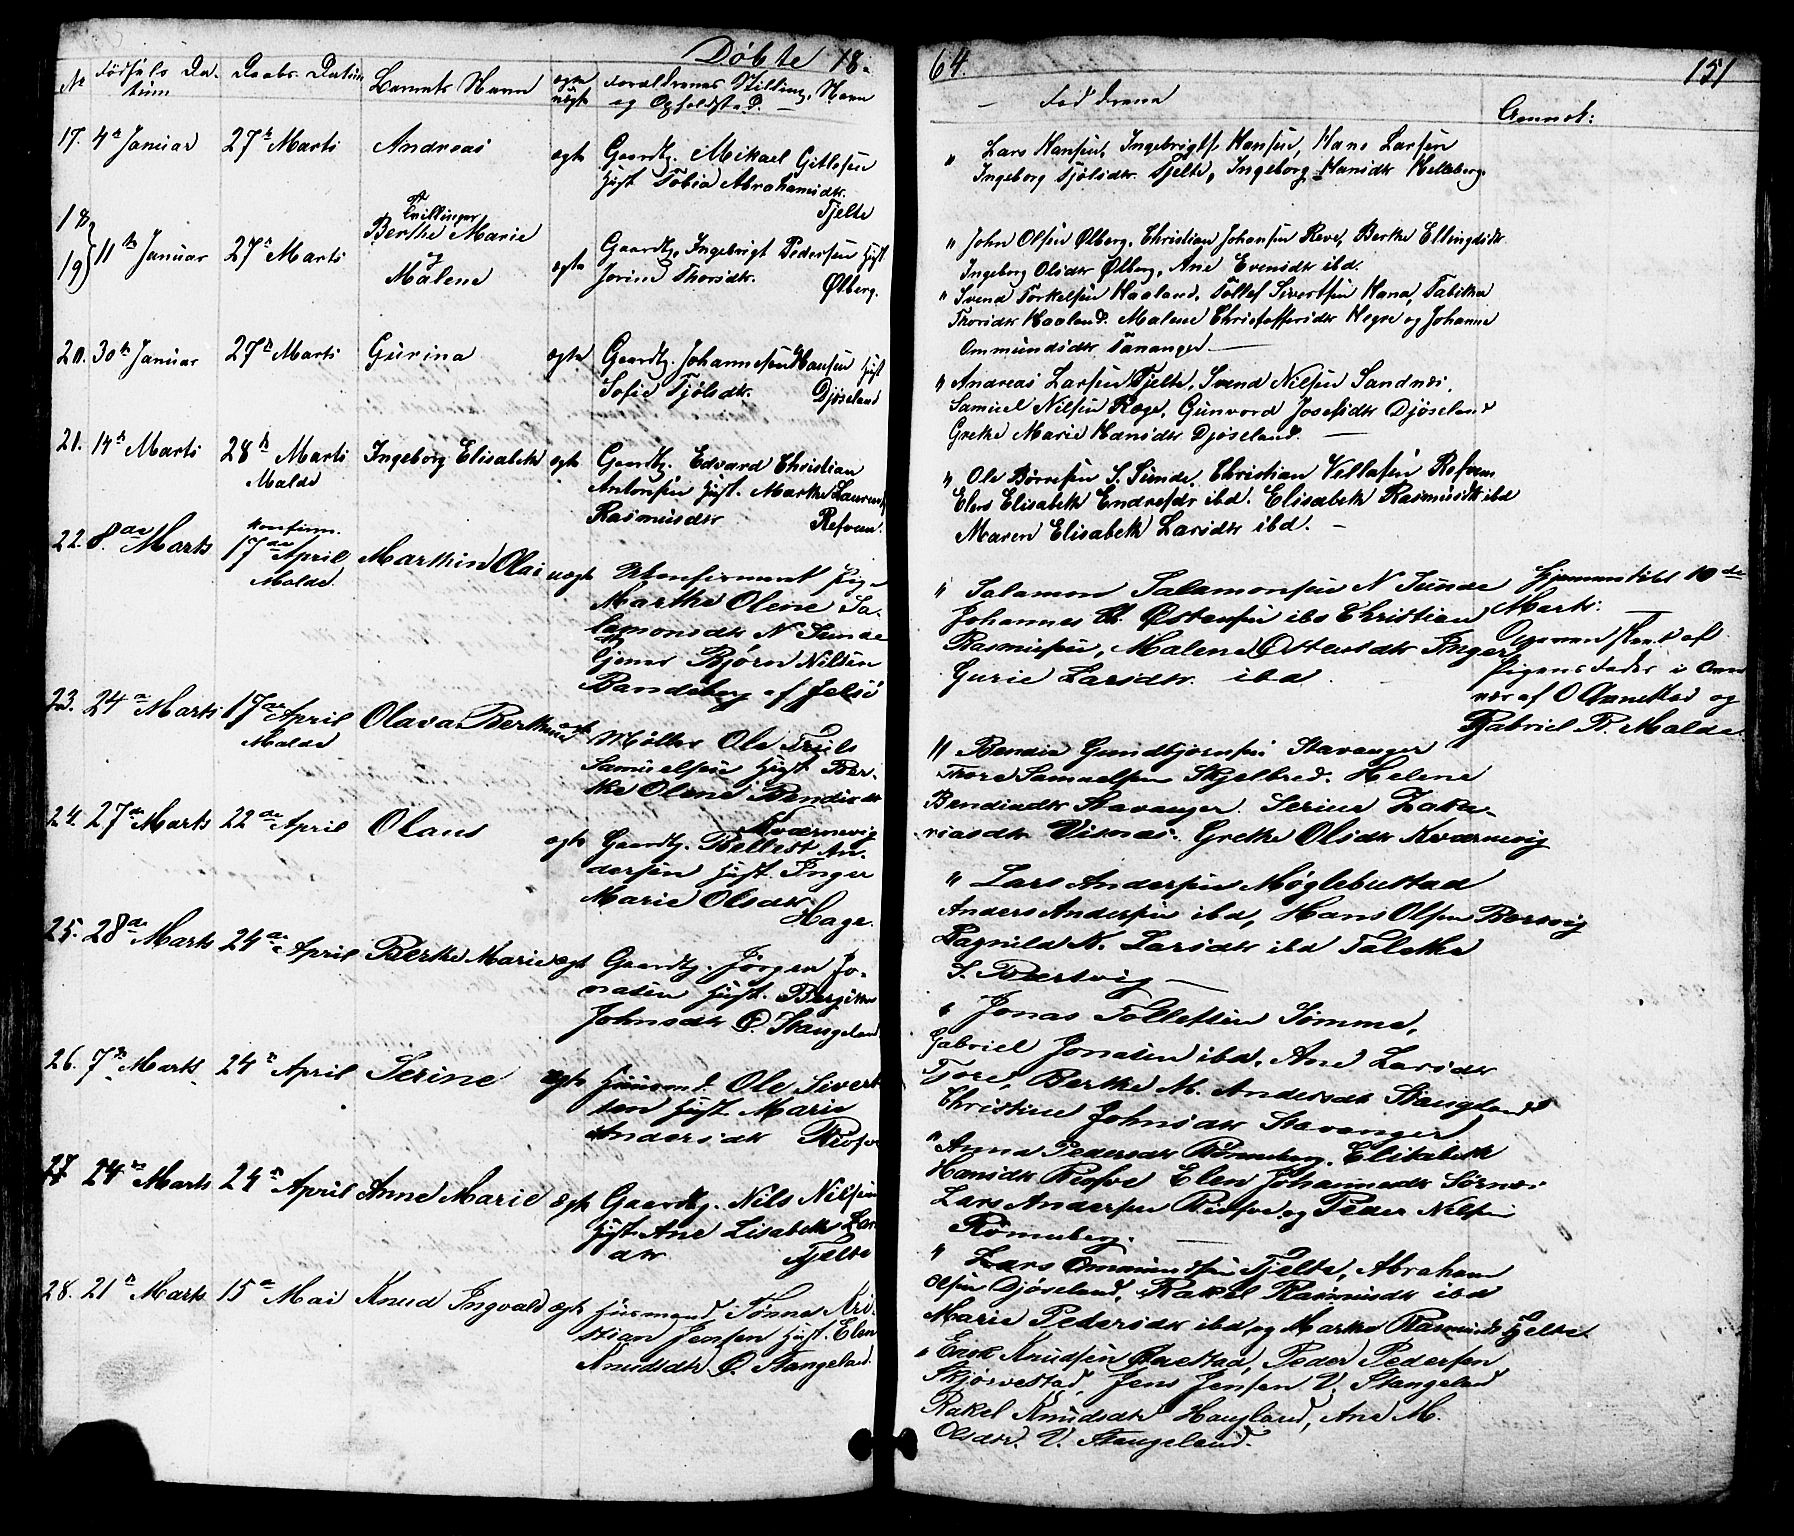 Döbte 18 64. 151
No Födsels Datum Daabs Datum Barnets Navn ægte uægte Forældrenes Stilling, Navn og Opholdsted. Faddrene Anmk:
17. 4de Januar 27de Marts Andreas ægte Gaardbr. Mikael Gitlesen
Hust Tobia Abrahamsdtr.
Tjelte
" Lars Hansen, Ingebrigt Hansen, Hans Larsen
Ingeborg Tjölsdtr. Tjelte, Ingeborg Hansdtr
18 19 11te Januar 27de Marts Tvillinger
Berthe Marie
og
Malene
ægte Gaardbr. Ingebrigt Pedersen Hust
Jorine Thorsdtr. Ølberg.
" John Olsen Ølberg, Christian Johansen Reve, Berthe Ellingsdtr
Ingeborg Olsdtr Ølberg, Ane Evensdtr ibd.
" Svend Torkelsen Haaland, Tollef Sivertsen Hana, Tabitha
Thorsdtr Haaland. Malene Christoffersdtr Hegre og Johanne
Ommundsdtr Tananger
20. 30te Januar 27de Marts Gurina ægte Gaardbr. Johannes Hansen Hust
Sofie Tjölsdtr. Djöseland
" Andreas Larsen Tjelte, Svend Nilsen Sandnes,
Samuel Nilsen Ræge, Gunvord Josefsdtr Djöseland
Grethe Marie Hansdtr Djöseland.
21. 14de Marts 28de Marts Malde Ingeborg Elisabeth ægte Gaardbr. Edvard Christian
Antonsen Hust. Marthe Laurense
Rasmusdtr Refven.
" Ole Börresen S. Sunde, Christian Villasen Refven
Elen Elisabeth Endresdtr ibd. Elisabeth Rasmusdtr ibd
Maren Elisabeth Larsdtr ibd.
22. 8de Marts konfirm. 17de April Malde Marthin Olai uægte Ukonfirmeret Pige
Marthe Olene Salamonsdtr N Sunde
Bjørn Nilsen
af Jelsö
" Salamon Salamonsen N Sunde
Johannes Østensen ibd Christian
Rasmusen, Malene Ostensdtr Inger
Gurie Larsdtr. ibd.
Hjemmedöbt 10de
Marts.
Pigens Fader
af O Omnestad og
Gabriel P. Malde.
23. 24de Marts 17de April Malde Olava Berthine ægte Möller Ole Truls
Samuelsen Hust Berthe Olene Bendixdtr
Kværnevig
" Bendix Gundbjornsen Stavanger
Thore Samuelsen Skjelbred. Helene
Bendixdtr Stavanger. Serine Zakariasdtr Visnæs. Grethe Olsdtr Kværnevig
24. 27de Marts 22de April Olaus ægte Gaardbr. Bellest Andersen Hust. Inger
Marie Olsdtr
Hage.
" Lars Andersen Möglebustad
Anders Andersen ibd, Hans Olsen Boersvig
Ragnild N. Larsdtr ibd Taletke
S. Bærtvig
25. 28de Marts 24de April Berthe Marie ægt Gaardbr. Jörgen Jonasen Hust. Bergithe
Johnsdtr Ø. Stangeland
" Jonas Tollefsen Sömme,
Gabriel Jonasen ibd, Ane Larsdtr
Tjore, Berthe M. Andersdtr Stangeland
Christine Johnsdtr Stavanger
26. 7de Marts 24de April Serine ægte Husmand Ole Sivertsen Hust Marie
Andersdtr Risfve
" Anna Pedersdtr Rönneberg, Elisabeth
Hansdtr Risfve Elen Johannesdtr Sörnes
Lars Andersen Risfve og Peder Nilsen
Rönneberg.
27 24de Marts 24de April Anne Marie ægte Gaardbr. Nils Nilsen
Hust Ane Lisabeth Larsdtr Tjelte
" Lars Ommundsen Tjelte, Abraham
Olsen Djöseland, Rakel Rasmusdtr ibd
Marie Pedersdtr ibd og Marthe Rasmusdtr Tjelte.
28. 21de Marts 15de Mai Knud Ingvald ægte Husmand Tönnes Kristian Jensen Hust. Elen
Knudsdtr Ø. Stangeland.
" Erik Knudsen Peder Pedersen
Skjörvestad, Jens Jensen V. Stangeland
Rakel Knudsdtr Haugland, Ane M.
Olsdtr. V. Stangeland.